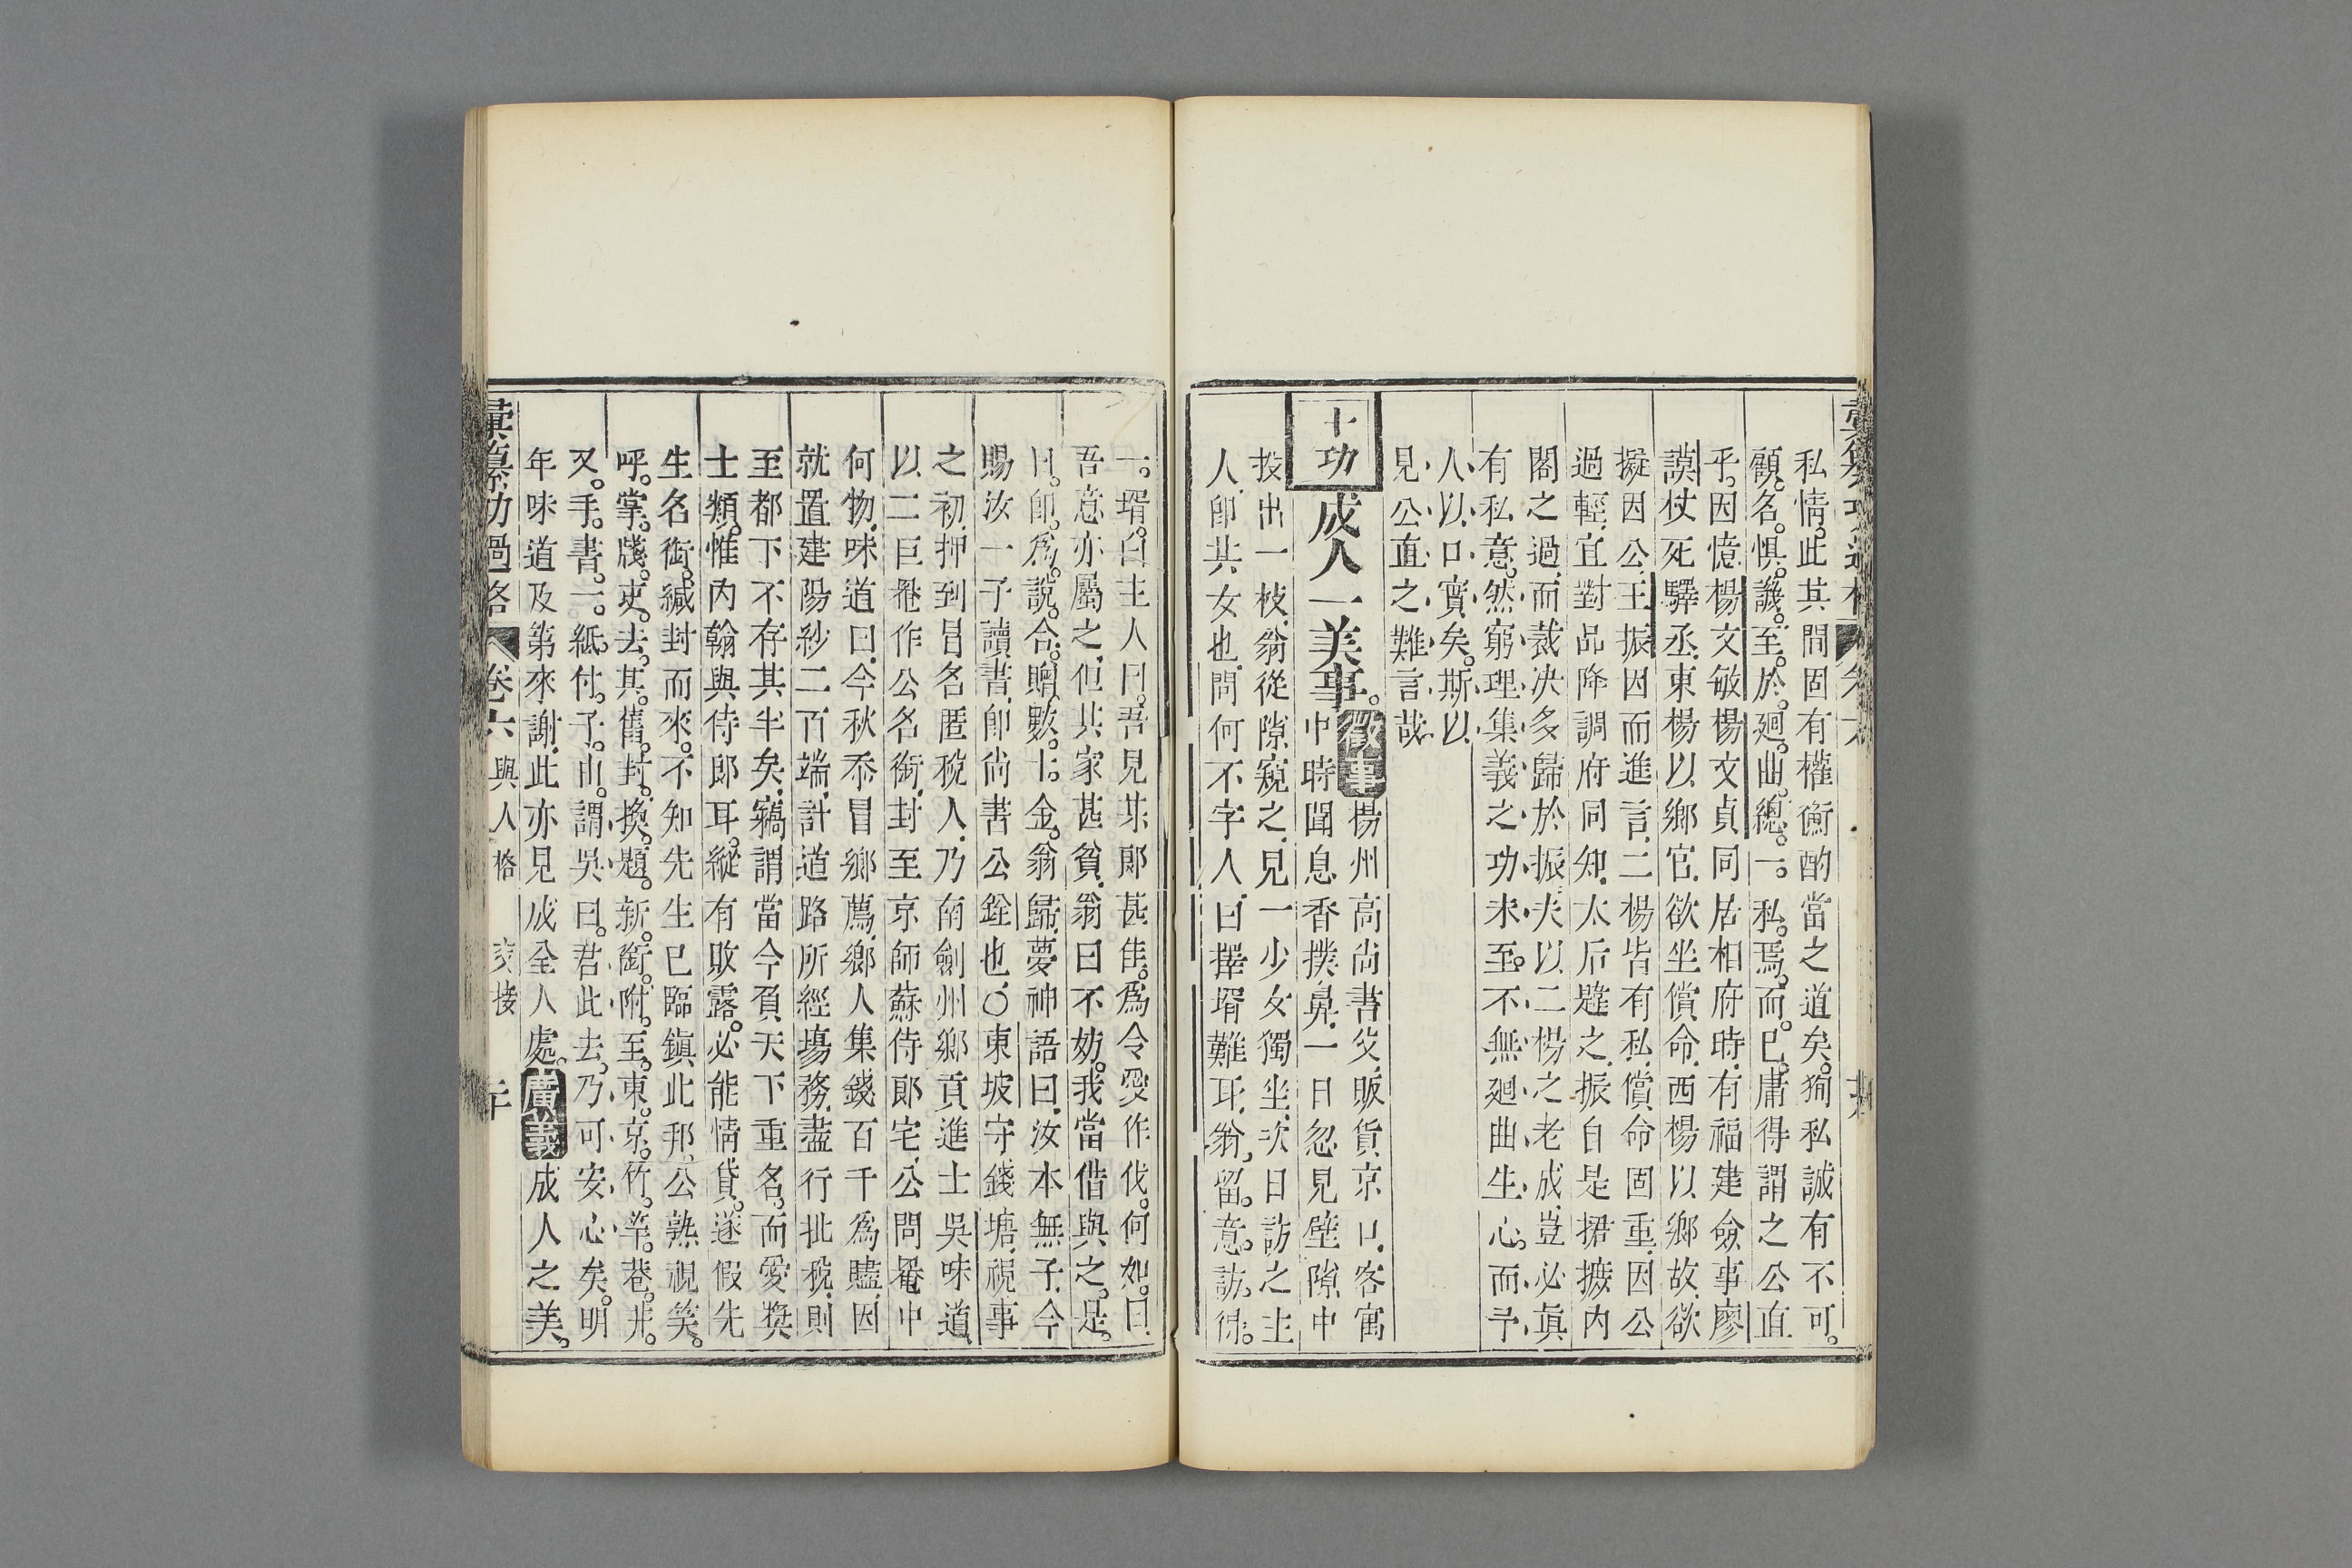 彙纂功過格 卷六
私情。此其間固有權衡酌當之道矣。狥私誠有不可。
顧名。惧譏。至於廻曲。總一私焉。而已。庸得謂之公直
乎。因憶楊文敏楊文貞同居相府時。有福建僉事廖
謨杖死驛丞。東楊以鄉官。欲坐償命。西楊以鄉故。欲
擬因公。王振因而進言。二楊皆有私。償命固重。因公
過輕。宜對品降調府同知。太后韙之。振自是捃摭內
閣之過。而裁决多歸於振。夫以二楊之老成。豈必眞
有私意。然窮理集義之功未至。不無廻曲生心。而予
人以口實矣。斯以
見公直之難言哉
十功 成人一美事。徵事 楊州高尚書父。販貨京口。客寓
中時聞息香撲鼻。一日忽見壁隙中
投出一枝。翁從隙窺之。見一少女獨坐。次日訪之主
人。卽其女也。問何不字人。曰擇壻難耳。翁留意訪得。
一壻。白主人曰。吾見某郎甚佳。爲令愛作伐。何如。曰
吾意亦屬之。但其家甚貧。翁曰不妨。我當借與之。是
日。卽爲說合。贈數十金。翁歸。夢神語曰。汝本無子。今
賜汝一子讀書。卽尚書公銓也。○東坡守錢塘。視事
之初。押到冒名匿稅人。乃南劍州鄉貢進士吳味道
以二巨捲作公名銜。封至京師蘇侍郎宅。公問捲中
何物。味道曰。今秋忝冒鄉薦。鄉人集錢百千爲贐。因
就置建陽紗二百端。計道路所經塲務。盡行批稅。則
至都下不存其半矣。竊謂當今負天下重名。而愛奬
士類。惟內翰與侍郎耳。縱有敗露。必能情貸。遂假先
生名銜。緘封而來。不知先生已臨鎭此邦。公熟視笑。
呼掌牋吏去其舊封。換題新銜。附至東京竹竿巷。幷
又手書一紙付子由。謂吳曰。君此去。乃可安心矣。明
年味道及第來謝。此亦見成全人處。廣義 成人之美。
彙纂功過格 卷六 與人格 交接